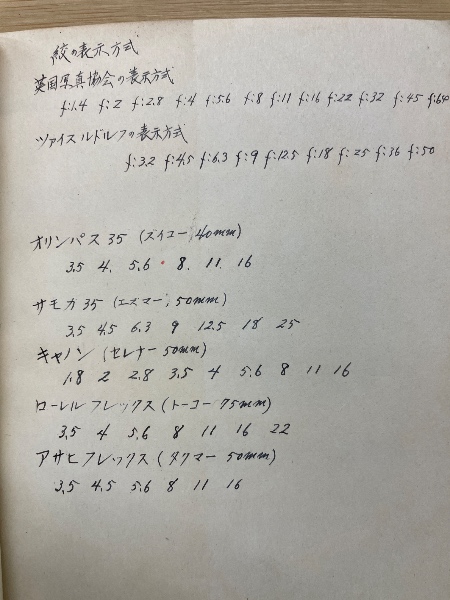 絞の表示方式
英国写真協会の表示方式
f:1.4 f:2 f:2.8 f:4 f:5.6 f:8 f:11 f:16 f:22 f:32 f:45 f:64
ツァイス ルドルフの表示方式
f:3.2 f:4.5 f:6.3 f:9 f:12.5 f:18 f:25 f:36 f:50
オリンパス 35 (ズイコー, 40mm)
3.5 4. 5.6 8. 11. 16
サモカ 35 (エズマー, 50mm)
3.5 4.5 6.3 9 12.5 18 25
キャノン (セレナー 50mm)
1.8 2 2.8 3.5 4 5.6 8 11 16
ローレルフレックス (トーコー 75mm)
3.5 4 5.6 8 11 16 22
アサヒフレックス (タクマー 50mm)
3.5 4.5 5.6 8 11 16